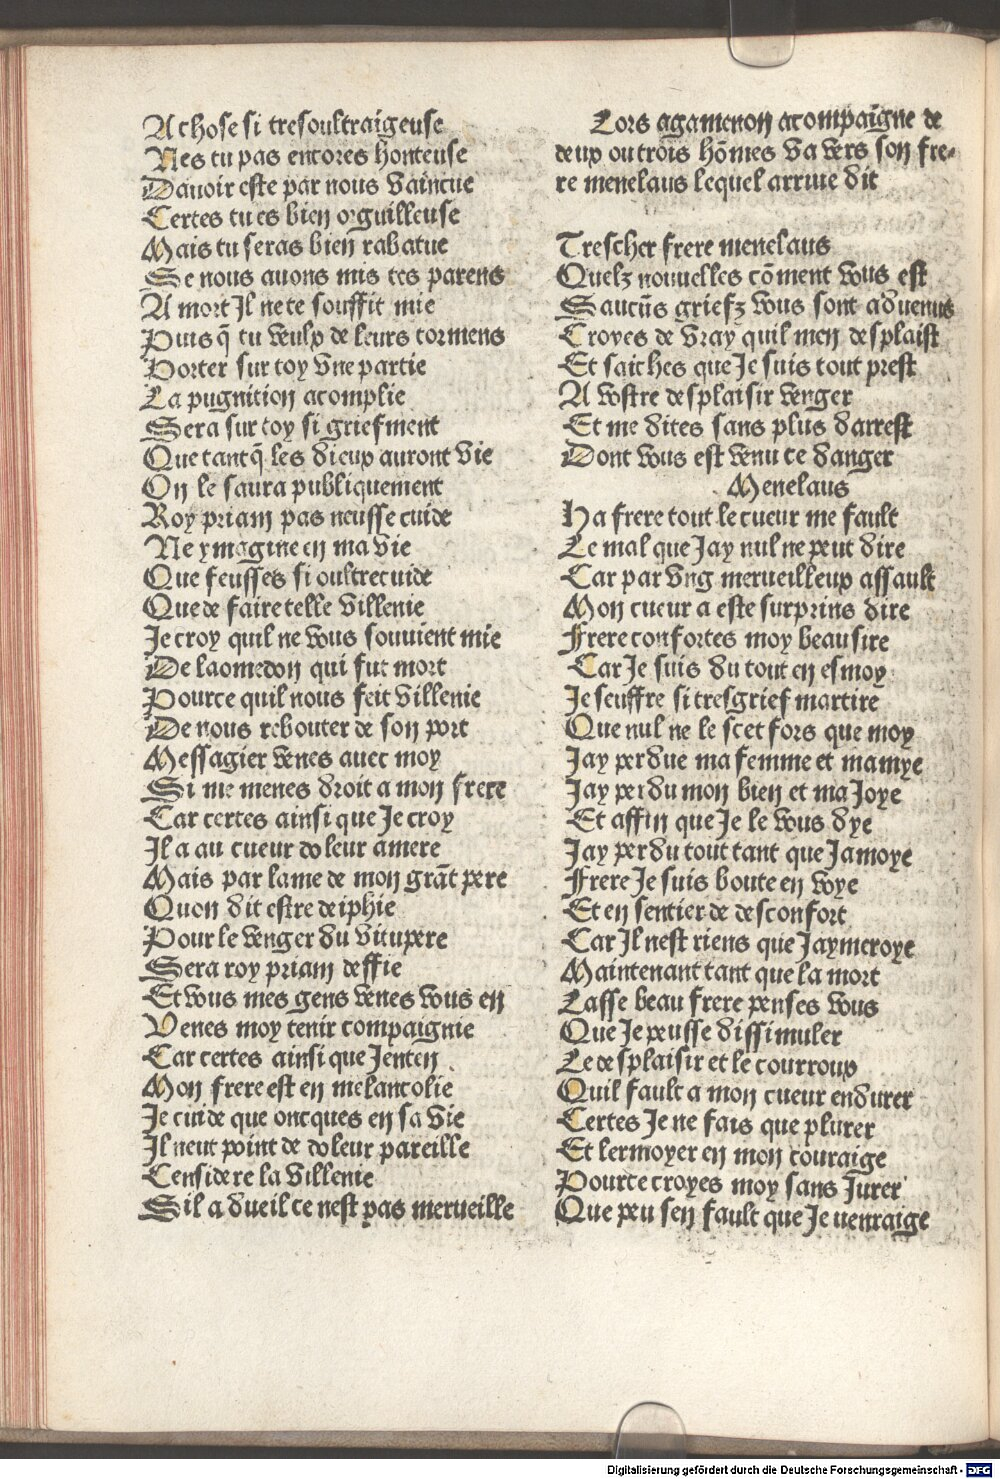 A chose si tresoultraigeuse
Nes tu pas encores honteuse
Dauoir este par nous vaincue
Certes tu es bien orguilleuse
Mais tu seras bien rabatue
Se nous auons mis tes parens
A mort Il ne te souffit mie
Puis q̄ tu veulx de leurs tormens
Porter sur toy vne partie
La pugnition acomplie
Sera sur toy si griefment
Que tant q̄ les dieux auront vie
On le saura publiquement
Roy priam pas neusse cuide
Ne ymagine en ma vie
Que feusses si oultrecuide
Que de faire telle villenie
Je croy quil ne vous souuient mie
De laomedon qui fut mort
Pource quil nous feit villenie
De nous rebouter de son port
Messagier venes auec moy
Si me menes droit a mon frere
Car certes ainsi que Je croy
Il a au cueur doleur amere
Mais par lame de mon grāt pere
Quon dit estre deiphie
Pour le venger du vitupere
Sera roy priam deffie
Et vous mes gens venes vous en
Venes moy tenir compaignie
Car certes ainsi que Jenten
Mon frere est en melancolie
Je cuide que oncques en sa vie
Il neut point de doleur pareille
Considere la villenie
Sil a dueil ce nest pas merueille
Lors agamenon acompaigne de
deux ou trois hōmes va vers son fre-
re menelaus lequel arriue dit
Trescher frere menelaus
Quelz nouuelles cōment vous est
Saucūs griefz vous sont aduenus
Croyes de vray quil men desplaist
Et saiches que Je suis tout prest
A vostre desplaisir venger
Et me dites sans plus darrest
Dont vous est venu ce danger
Menelaus
Ha frere tout le cueur me fault
Le mal que Jay nul ne peut dire
Car par vng merueilleux assault
Mon cueur a este surprins dire
Frere confortes moy beau sire
Car Je suis du tout en esmoy
Je seuffre si tresgrief martire
Que nul ne le scet fors que moy
Jay perdue ma femme et mamye
Jay perdu mon bien et ma Joye
Et affin que Je le vous dye
Jay perdu tout tant que Jamoye
Frere Je suis boute en voye
Et en sentier de desconfort
Car Il nest riens que Jaymeroye
Maintenant tant que la mort
Lasse beau frere penses vous
Que Je peusse dissimuler
Le desplaisir et le courroux
Quil fault a mon cueur endurer
Certes Je ne fais que plurer
Et lermoyer en mon couraige
Pource croyes moy sans Jurer
Que peu sen fault que Je nenraige
Digitalisierung gefördert durch die Deutsche Forschungsgemeinschaft - DFG